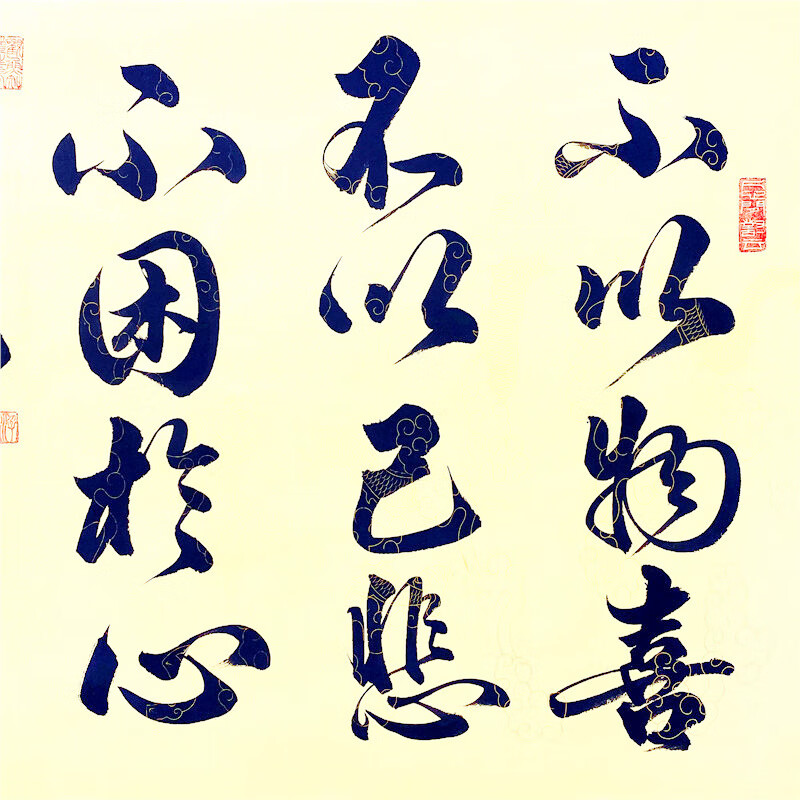 不以物喜
不以己悲
不困於心